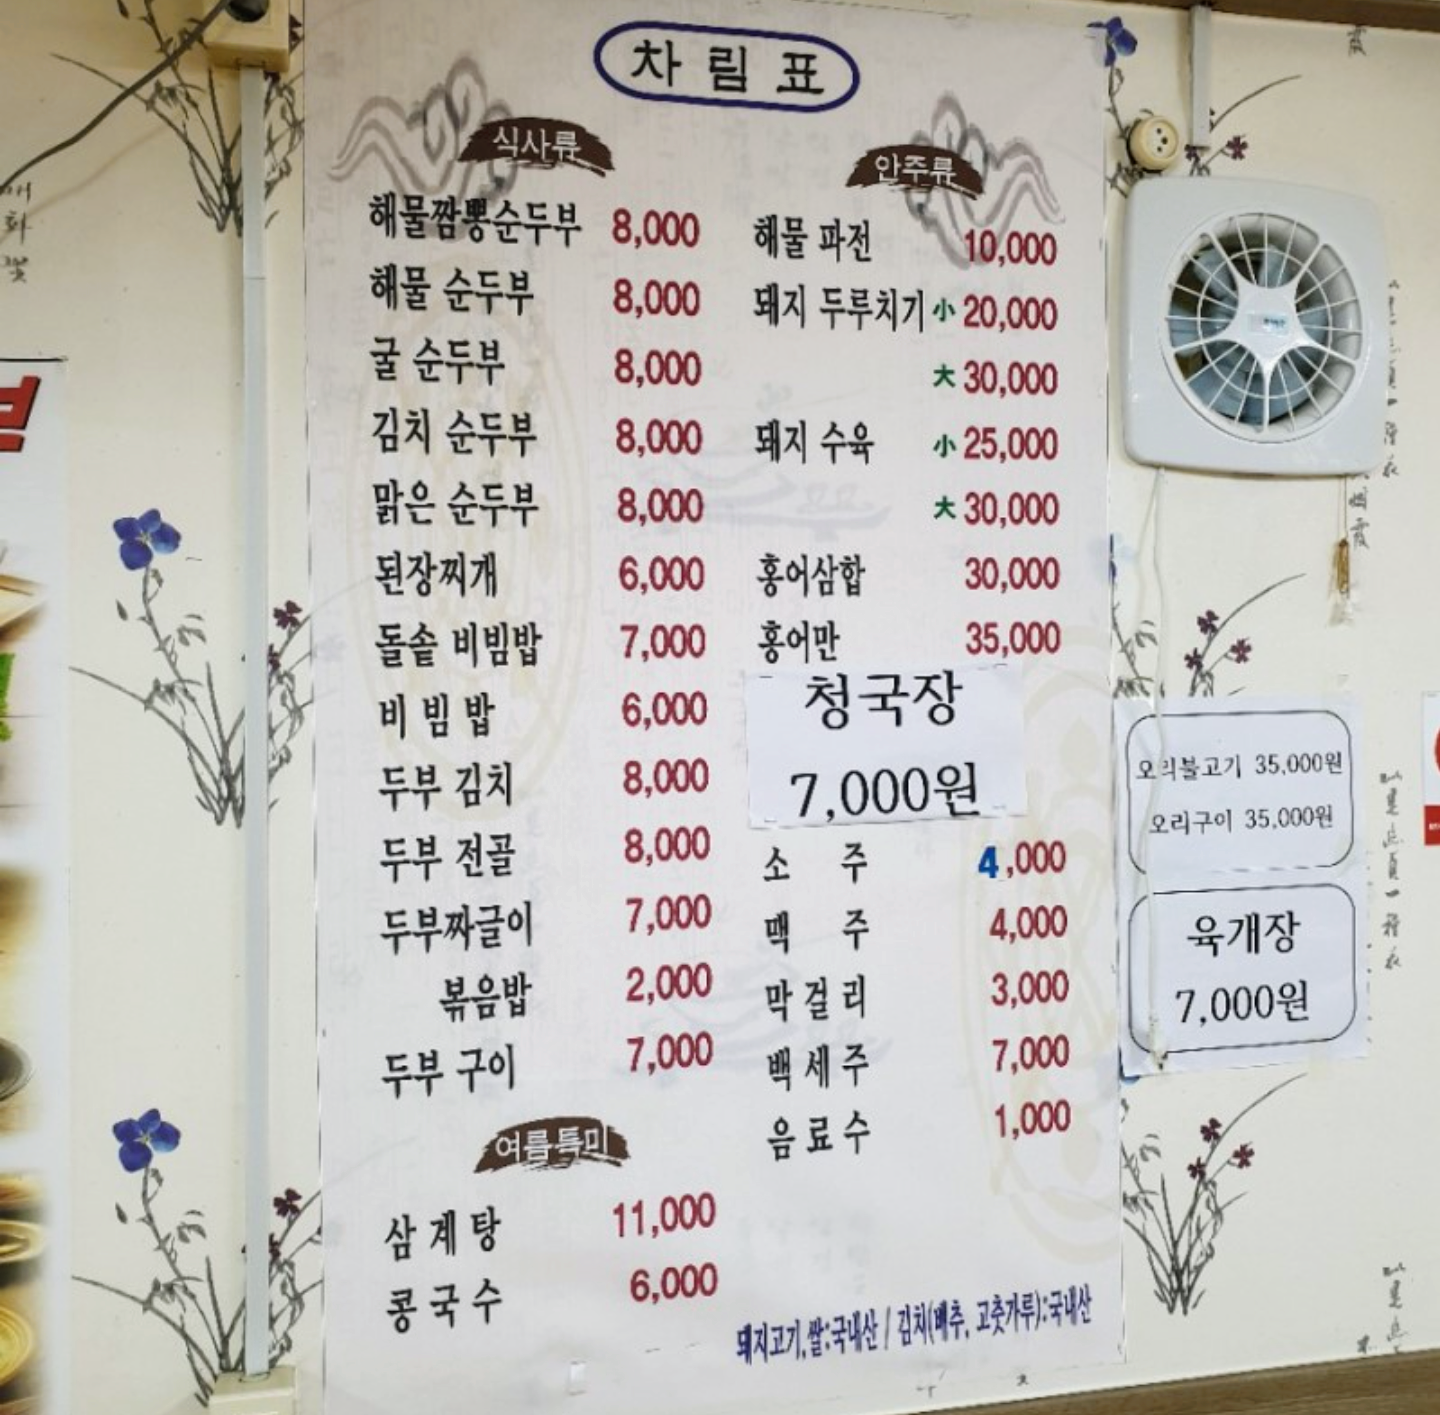 차림표
식사류
해물짬뽕순두부 8,000
해물 순두부 8,000
굴 순두부 8,000
김치 순두부 8,000
맑은 순두부 8,000
된장찌개 6,000
돌솥 비빔밥 7,000
비빔밥 6,000
두부 김치 8,000
두부 전골 8,000
두부짜글이 7,000
볶음밥 2,000
두부 구이 7,000
여름특미
삼계탕 11,000
콩국수 6,000
안주류
해물 파전 10,000
돼지 두루치기 小 20,000
大 30,000
돼지 수육 小 25,000
大 30,000
홍어삼합 30,000
홍어만 35,000
청국장
7,000원
소주 4,000
맥주 4,000
막걸리 3,000
백세주 7,000
음료수 1,000
돼지고기,쌀:국내산 / 김치(배추, 고춧가루):국내산
오리불고기 35,000원
오리구이 35,000원
육개장
7,000원